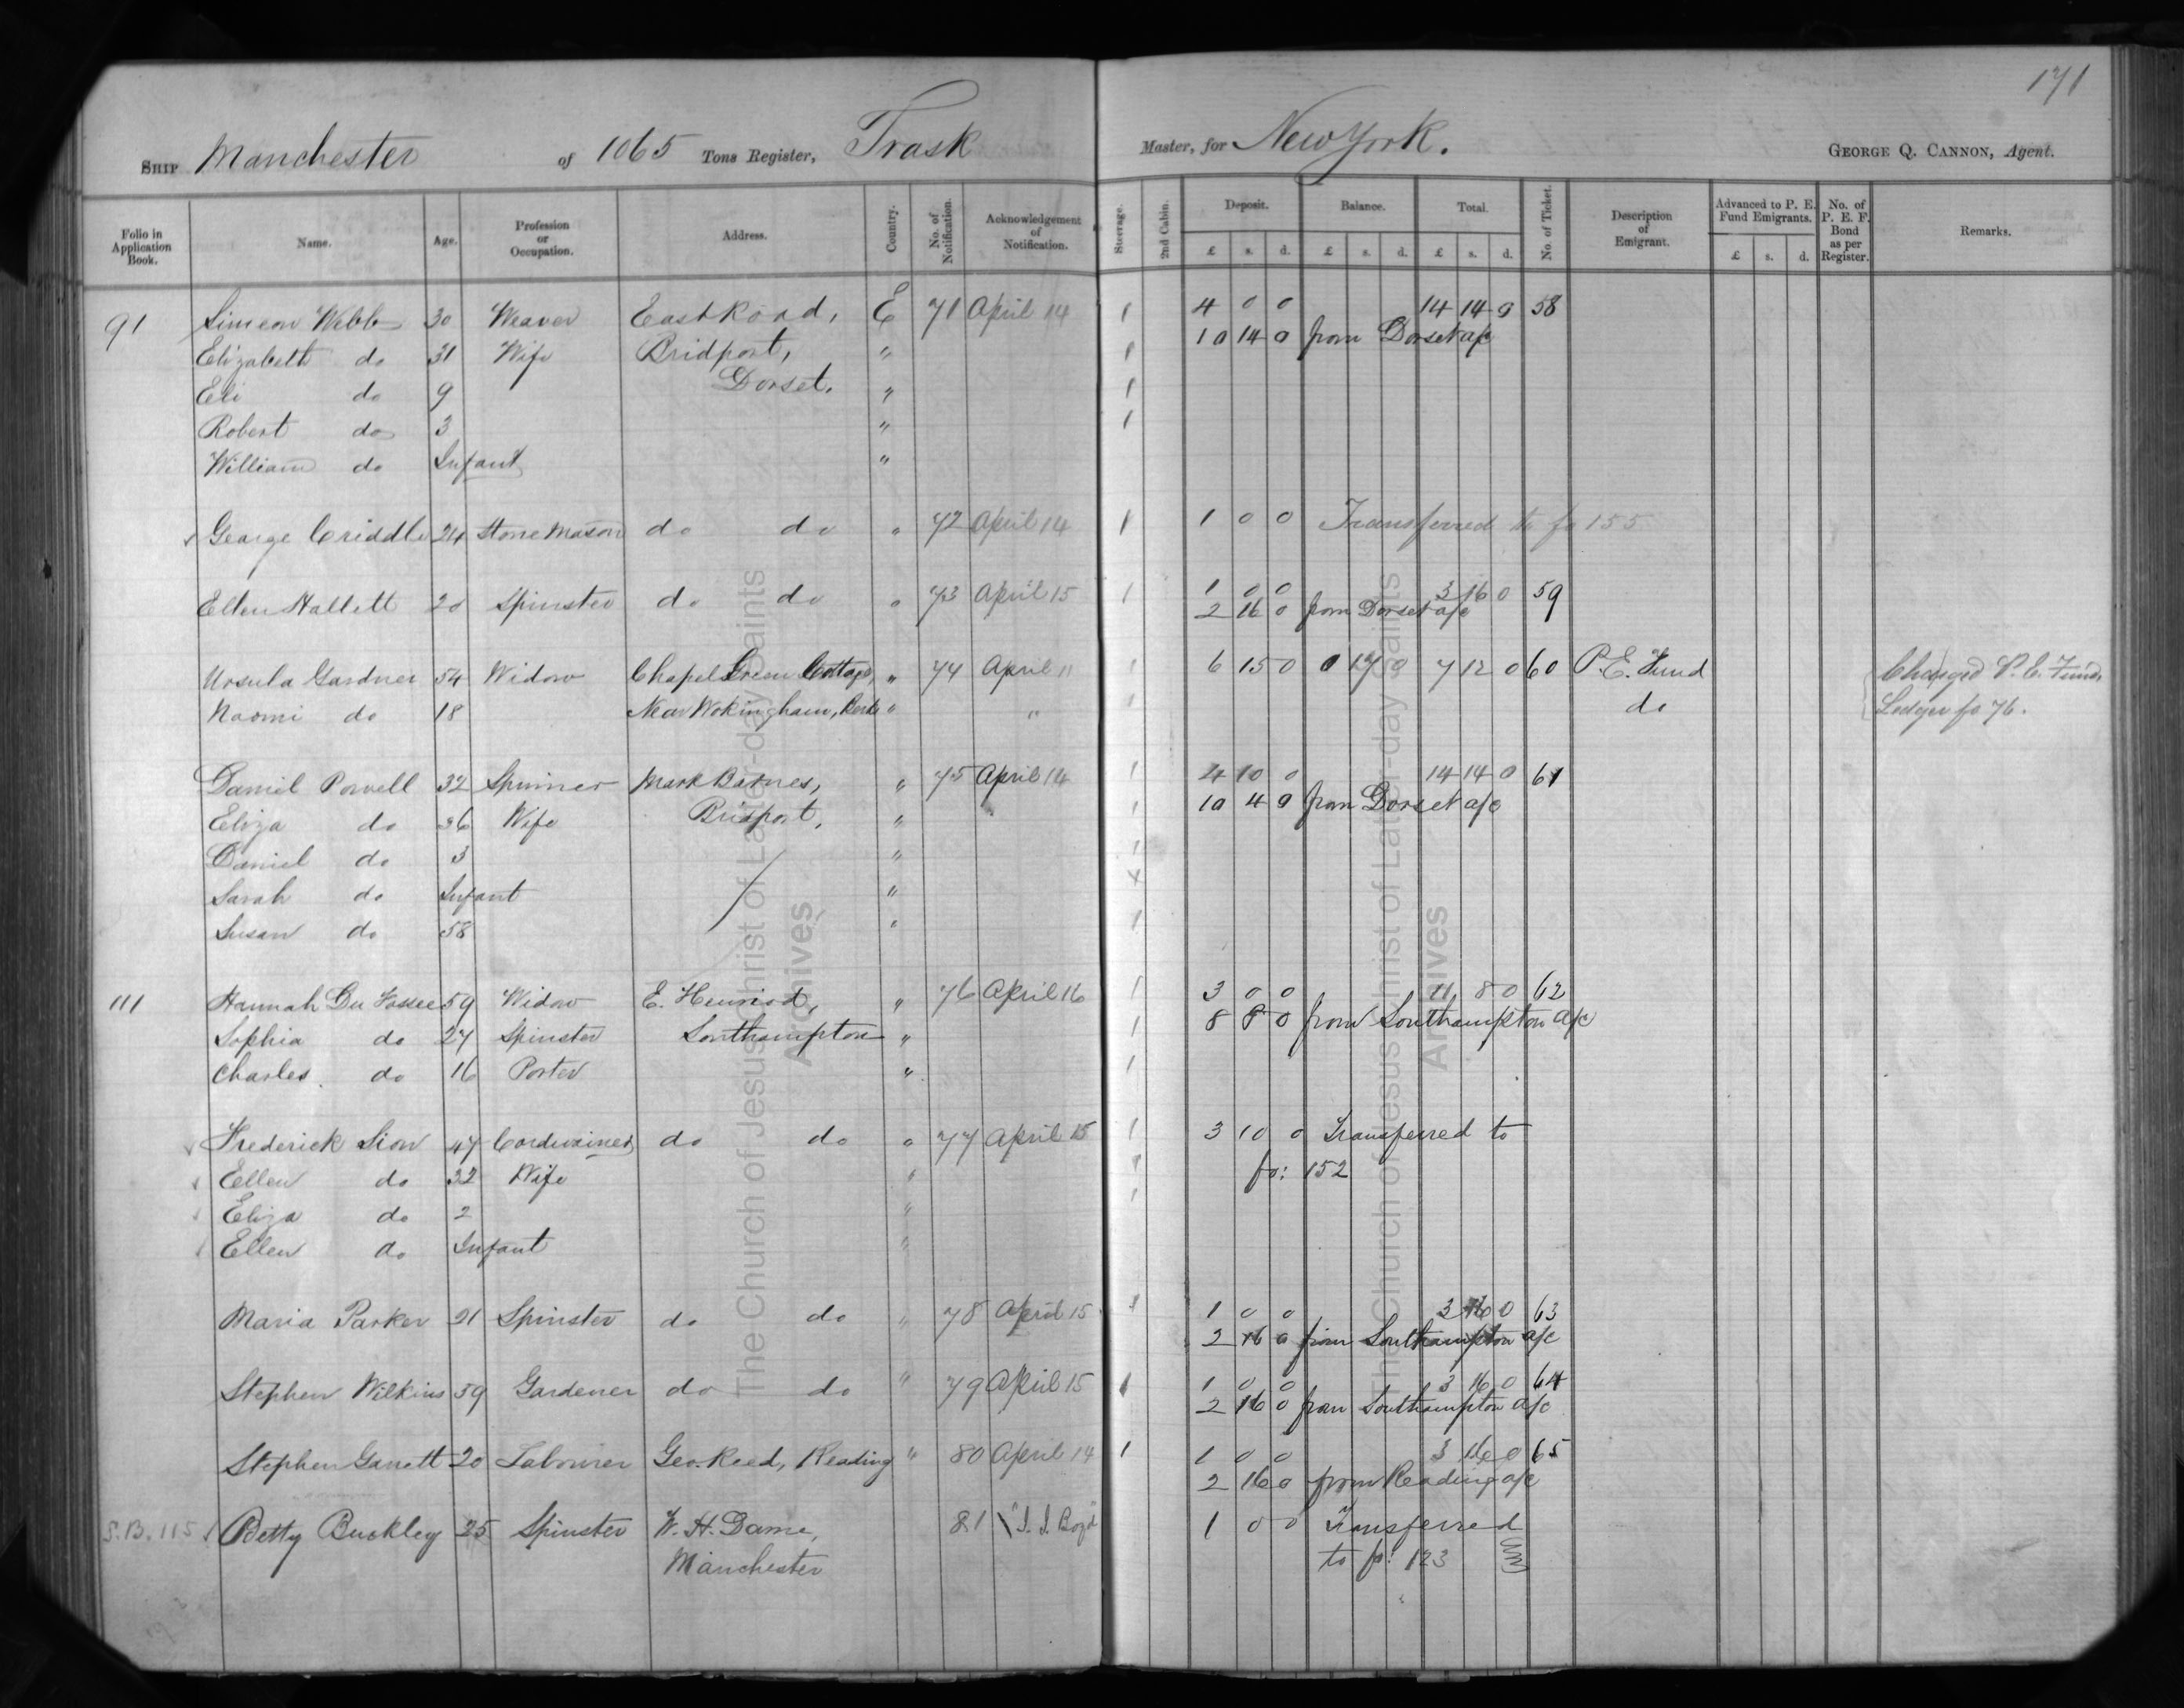 171
SHIP Manchester of 1065 Tons Register, Trask Master, for New York. GEORGE Q. CANNON, Agent.
Folio in Application Book. Name. Age. Profession or Occupation. Address. Country. No. of Notification. Acknowledgement of Notification. Steerage. 2nd Cabin. Deposit. Balance. Total. No. of Ticket. Description of Emigrant. Advanced to P. E. Fund Emigrants. No. of P. E. F. Bond as per Register. Remarks.
£ s. d. £ s. d. £ s. d. £ s. d.
91 Simeon Webb 30 Weaver East Road, E 71 April 14 1 4 0 0 14 14 0 58
Elizabeth do 31 Wife Bridport, " 1 10 14 0 from Dorset a/c
Eli do 9 Dorset. " 1
Robert do 3 " 1
William do Infant "
George Criddle 24 Stone Mason do do " 72 April 14 1 1 0 0 Transferred to fo 155
Ellen Hallett 20 Spinster do do " 73 April 15 1 1 0 0 3 16 0 59
2 16 0 from Dorset a/c
Ursula Gardner 54 Widow Chapel Green Cottage, " 74 April 11 1 6 15 0 0 17 0 7 12 0 60 P. E. Fund Charged P. E. Fund
Naomi do 18 Near Wokingham, Berks " " 1 do Ledger fo 76.
Daniel Powell 32 Spinner Mark Barnes, " 75 April 14 1 4 10 0 14 14 0 61
Eliza do 36 Wife Bridport, " 1 10 4 0 from Dorset a/c
Daniel do 3 " 1
Sarah do Infant "
Susan do 58 " 1
111 Hannah Du Fosee 59 Widow E. Henriod, " 76 April 16 1 3 0 0 11 8 0 62
Sophia do 27 Spinster Southampton " 1 8 8 0 from Southampton a/c
Charles do 16 Porter " 1
Frederick Sion 47 Cordwainer do do " 77 April 15 1 3 10 0 Transferred to
Ellen do 32 Wife " 1 fo: 152
Eliza do 2 " 1
Ellen do Infant "
Maria Parker 21 Spinster do do " 78 April 15 1 1 0 0 3 16 0 63
2 16 0 from Southampton a/c
Stephen Wilkins 59 Gardener do do " 79 April 15 1 1 0 0 3 16 0 64
2 16 0 from Southampton a/c
Stephen Garrett 20 Labourer Geo. Reed, Reading " 80 April 14 1 1 0 0 3 16 0 65
2 16 0 from Reading a/c
S.B. 115 Betty Buckley 25 Spinster W. H. Dame, 81 "J. J. Boyd" 1 0 0 Transferred
Manchester to fo: 123
The Church of Jesus Christ of Latter-day Saints
Archives
The Church of Jesus Christ of Latter-day Saints
Archives